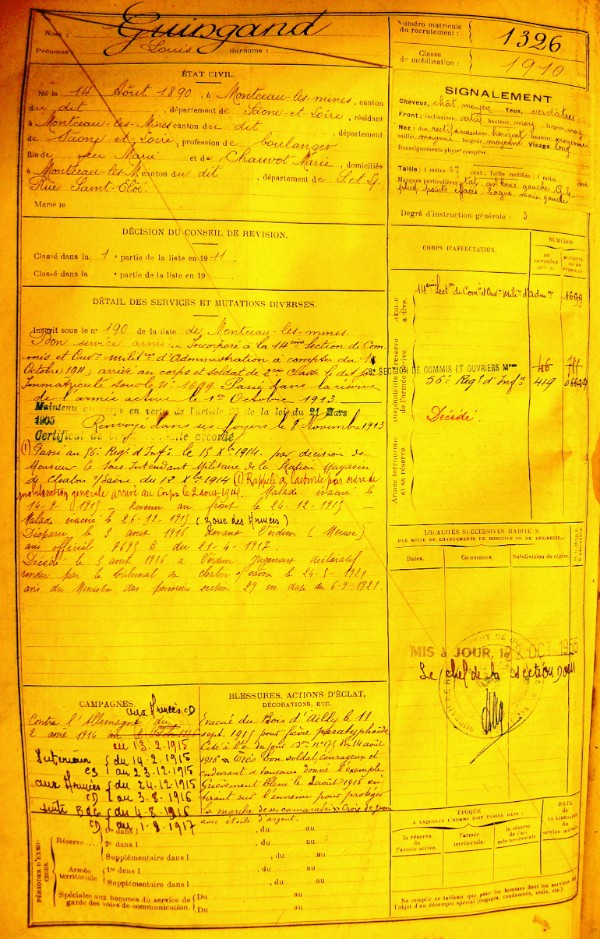 Nom : Guingand
Prénoms : Louis surnoms :
Numéro matricule du recrutement : 1326
Classe de mobilisation : 1910
ÉTAT CIVIL.
Né le 14 Août 1890, à Montceau-les-mines, canton
du dit, département de Saône-et-Loire, résidant
à Montceau-les-Mines canton du dit, département
de Saône et Loire, profession de boulanger
fils de feu Marie et de Chauvot Marie, domiciliés
à Montceau-les-M canton du dit, département de S. et L.
Rue Saint-Eloi.
Marié le
SIGNALEMENT
Cheveux, chât. moyen Yeux, verdâtres
Visage, long
Renseignements physion. complém.
Taille : 1 mèt. 67 cent. Taille rectifiée : 1 mèt. cent.
Marques particulières : tat. av. bras gauche
Degré d'instruction générale : 3
DÉCISION DU CONSEIL DE REVISION.
Classé dans la 1 e partie de la liste en 1911.
Classé dans la e partie de la liste en 19
DÉTAIL DES SERVICES ET MUTATIONS DIVERSES.
Inscrit sous le n° 190 de la liste de Montceau-les-mines.
Bon service armé. Incorporé à la 14ème Section de Com-
mis et Ouv. Milit. d'Administration à compter du
Octobre 1911 ; arrivé au corps et soldat de 2ème Classe le dit jour
Immatriculé sous le N° 1699. Passé dans la réserve
de l'armée active le 1er Octobre 1913.
Maintenu en vertu de l'article de la loi du 21 Mars
1905 Renvoyé dans ses foyers le 8 Novembre 1913
Certificat de bonne conduite accordé
(1) Passé au 56e Rég. d'Inf. le 15 Xbre 1914. par décision de
Monsieur le Sous Intendant Militaire de la Station Magasin
de Chalon s/Saône du 12 Xbre 1914 (1) Rappelé à l'activité par ordre de
mobilisation générale Arrivé au Corps le 2 août 1914. Malade évacué le
14-9-1915 - Retour au front le 24-12-1915 -
Malade évacué le 26-12-1915 (Zone des Armées)
Disparu le 3 août 1916 devant Verdun Meuse)
avis officiel 7695 B du 21-4-1917
Décédé le 3 août 1916 à Verdun Jugement déclaratif
rendu par le tribunal de Chalon s/ Saône le 24-5-1921
avis du Ministre des pensions section 29 en date du 6-9-1921
CORPS D'AFFECTATION.
NUMÉROS
14ème Sect. de Com. et Ouv. Milit. d'Adm. 1699
SECTION DE COMMIS ET OUVRIERS M
56e Régt d'Inf. 419
Décédé
LOCALITÉS SUCCESSIVES HABITÉES
PAR SUITE DE CHANGEMENTS DE DOMICILE OU DE RÉSIDENCE.
Dates. Communes. Subdivision de région.
MIS à JOUR, le 2 OCT 1955
Le chef de la section
CAMPAGNES.
Contre l'Allemagne du aux Armées CD
2 août 1914
au 13.2.1915
Intérieur du 14.2.1915
CS au 23.12.1915
aux Armées du 24.12.1915
CD au 3.8.1916
du 4.8.1916
CD au 1.9.1917
BLESSURES, ACTIONS D'ÉCLAT,
DÉCORATIONS, ETC.
Évacué du Bois d'Ailly le 11
sept. 1915 pour fièvre paratyphoïde
Cité à l'O. du jour du 14 août
1916 « Très bon soldat, courageux et
endurant a toujours donné l'exemple
Grièvement blessé le 2 août 1916 en
tirant sur l'ennemi pour protéger
la marche de ses camarades » Croix de guerre
avec étoile d'argent.
PÉRIODES D'EXERCICES.
Réserve
1re dans l , du au
2e dans l , du au
Supplémentaire dans l , du au
Armée territoriale.
1re dans l , du au
Supplémentaire dans l , du au
Spéciales aux hommes du service de garde des voies de communication.
Du au
Du au
ÉPOQUE
À LAQUELLE L'HOMME DOIT PASSER DANS :
la réserve de l'armée active.
l'armée territoriale.
la réserve de l'armée territoriale.
DATE DE LA LIBÉRATION du service militaire